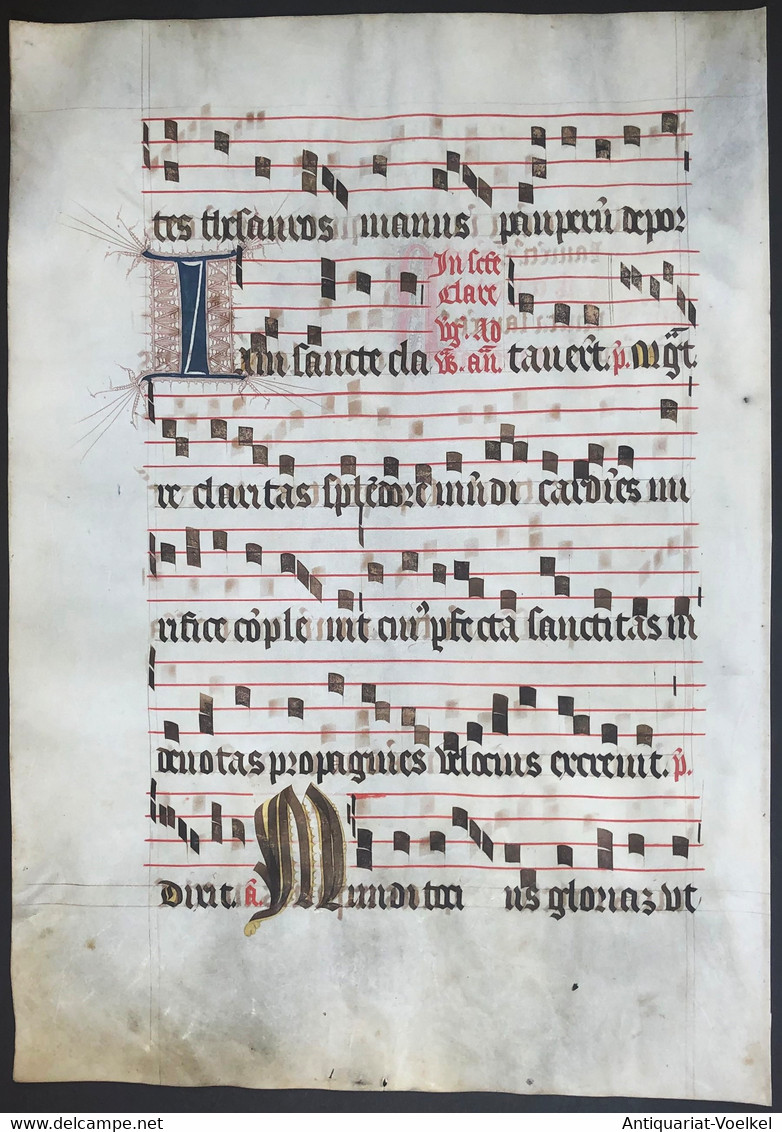 tes thesauros manus paupeꝝ̄ depor
In scte
Clare
v̄g. Ad
Iam sancte cla v̄s. an̄. tauert̄. p̄. Mag̃t.
re claritas splēdore mūdi cardīes mi
rifice cōple uit cui⁹ ꝑfecta sanctitas in
deuotas propagines velocius excreuit. p̄.
Dixit. a̅. Mundi toci us gloriaz vt
Antiquariat-Voelkel